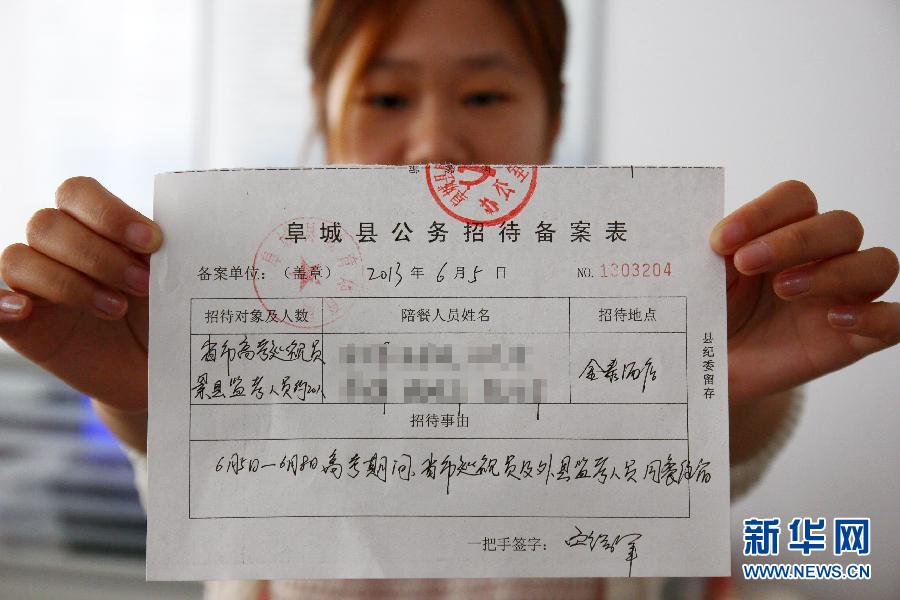 办公室
阜城县公务招待备案表
备案单位：（盖章） 2013 年 6 月 5 日 NO. 1303204
招待对象及人数 陪餐人员姓名 招待地点
省市高考巡视员
景县监考人员约20人
金泰酒店
招待事由
6月5日—6月8日高考期间、省市巡视员及外县监考人员用餐住宿
一把手签字：
县纪委留存
新华网
WWW.NEWS.CN